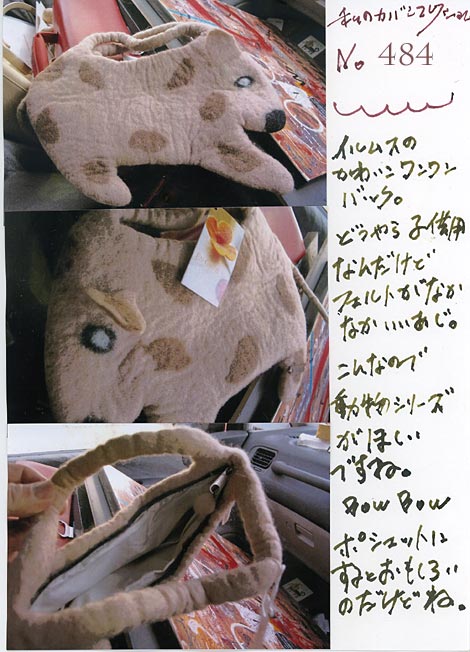 私のカバンコレクション
No. 484
イルムスの
かわいいワンワン
バック。
どうやら子供用
なんだけど
フェルトがなか
なかいいあじ。
こんなので
動物シリーズ
がほしい
ですね。
BOW BOW
ポシェットに
するとおもしろい
のだけどね。